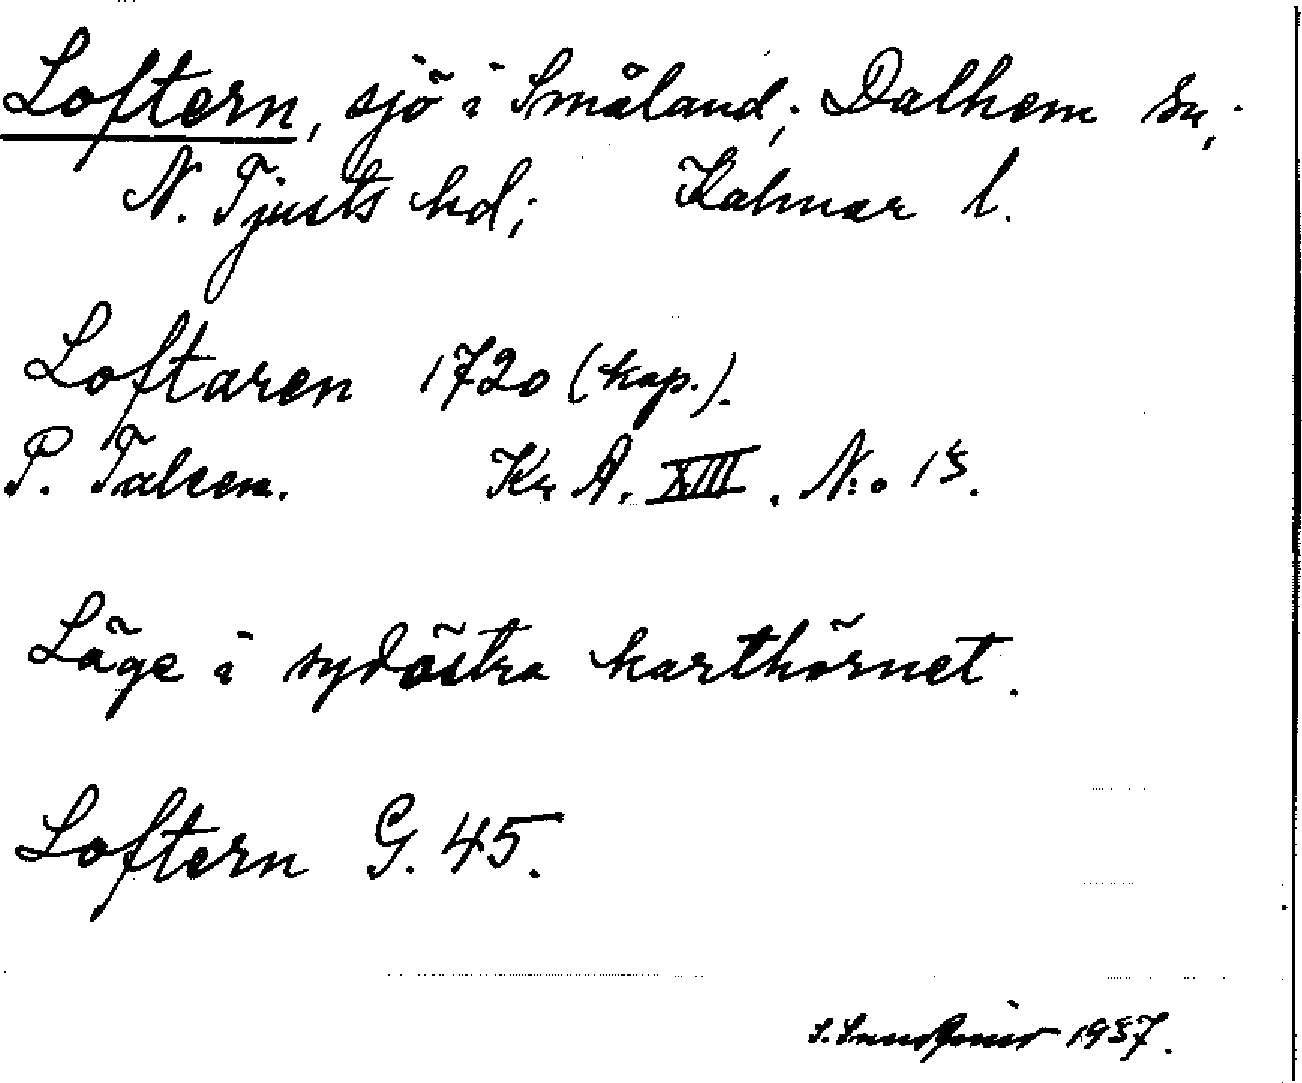 Loftern, sjö i Småland; Dalhem sn,;
N. Tjusts hd; Kalmar l.
Loftaren 1720 (kop.).
P. Talcen. Kr A. XIII. N:o 15.
Läge i sydöstra karthörnet.
Loftern G. 45.
1937.